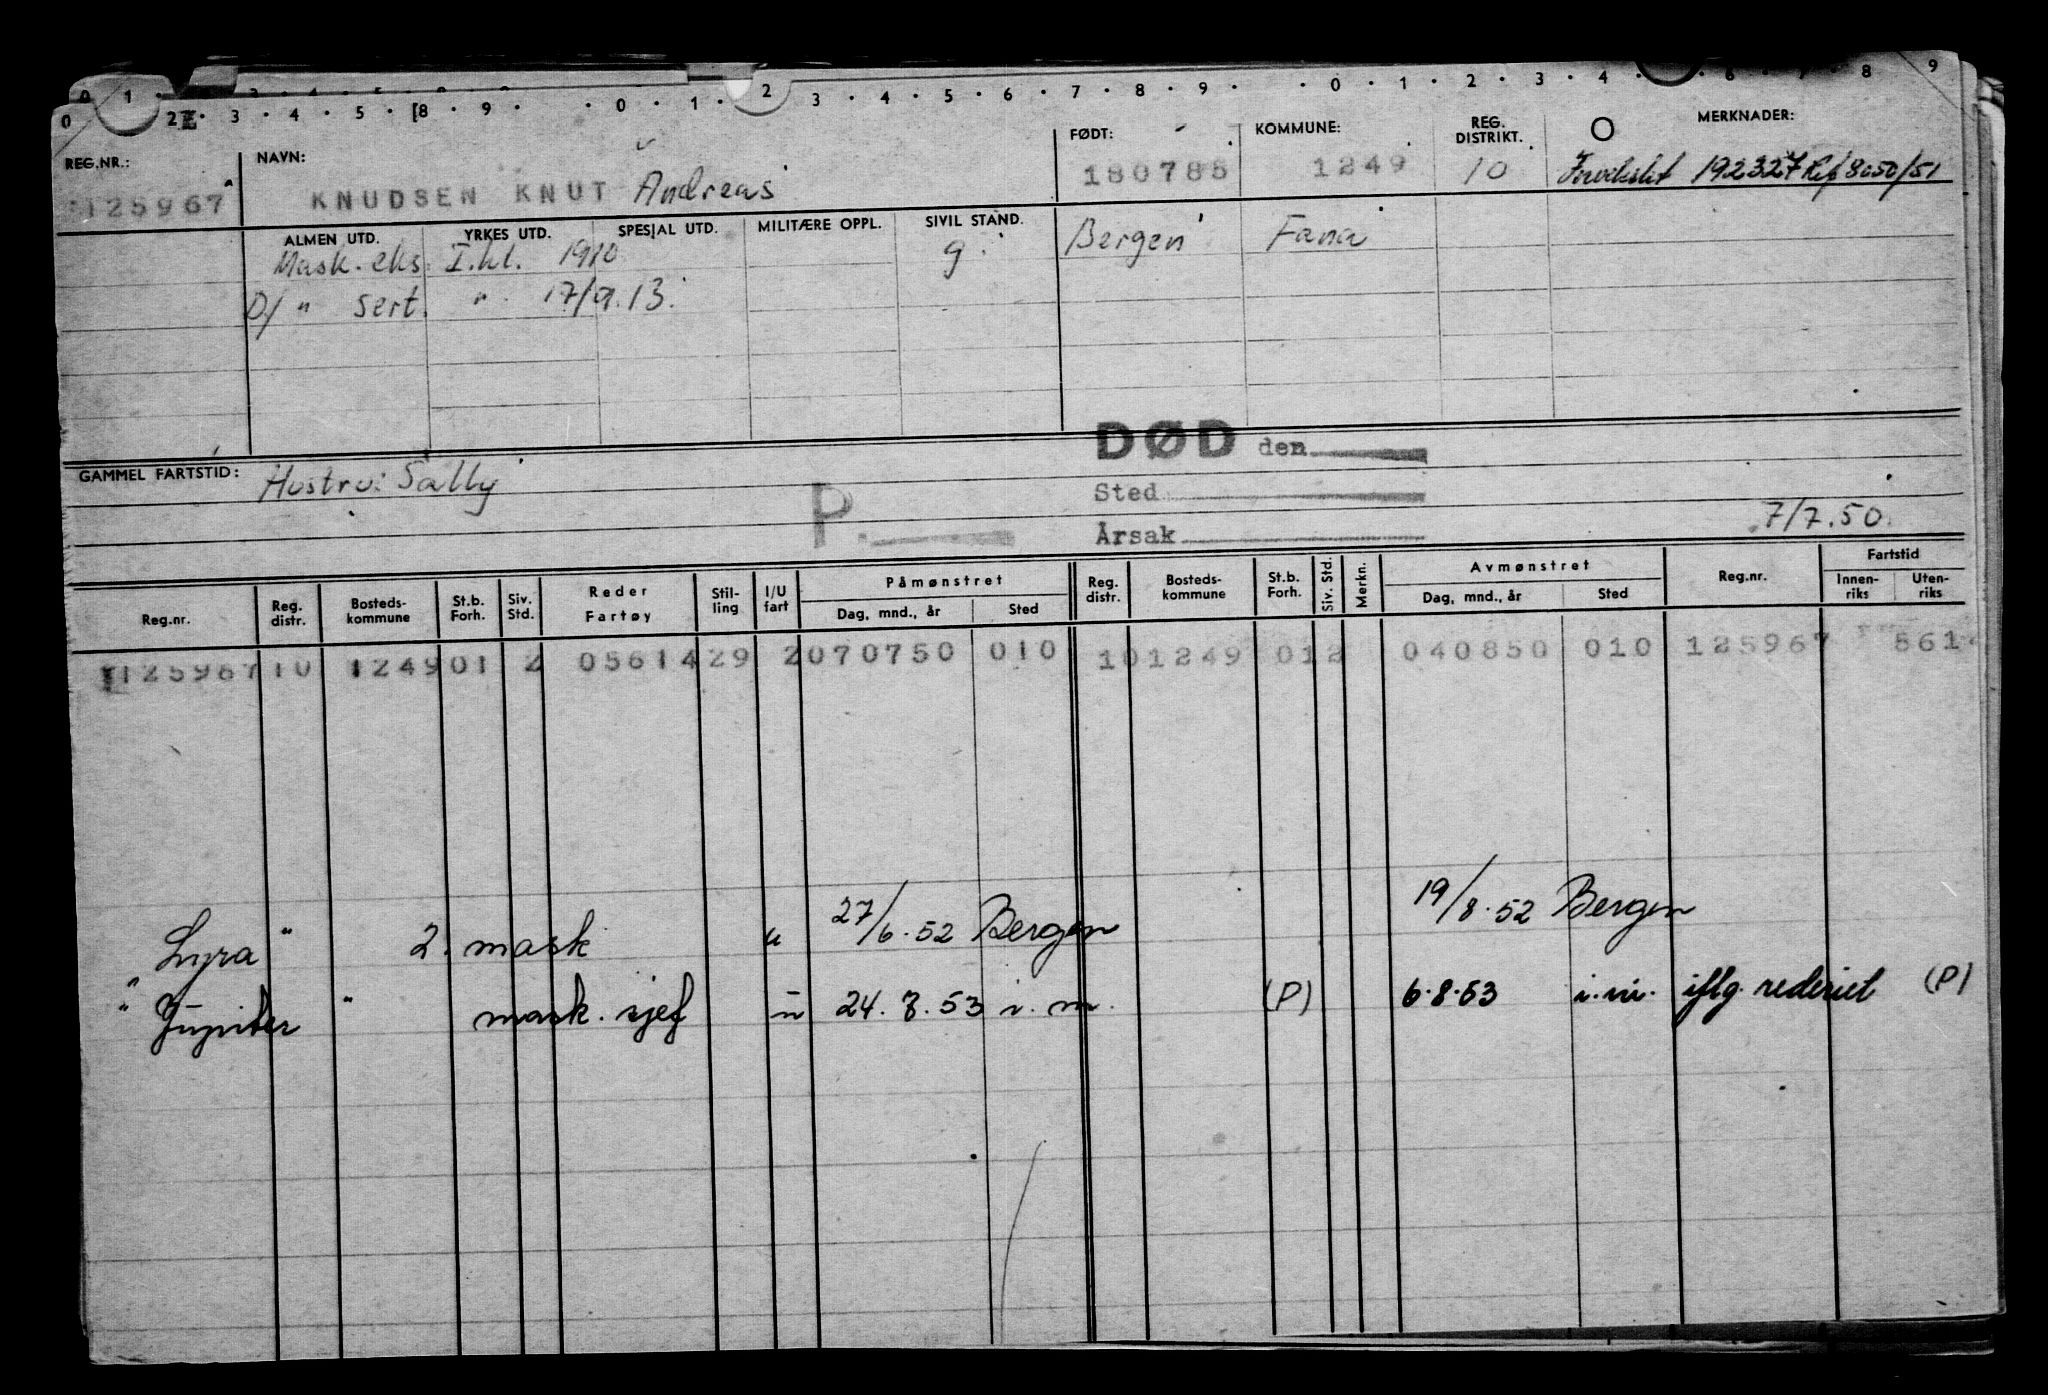 0 1 · 2 · 3 · 4 · 5 · 8 · 9 · · 0 · 1 · 2 3 · 4 · 5 · 6 · 7 · 8 · 9 · · 0 · 1 · 2 · 3 · 4 · 6 · 7 · 8 9
REG.NR.: NAVN: FØDT: KOMMUNE: REG. DISTRIKT. O MERKNADER:
125967 KNUDSEN KNUT Andreas 180785 1249 10 192327 8050/51
ALMEN UTD. YRKES UTD. SPESIAL UTD. MILITÆRE OPPL. SIVIL STAND.
Mask. eks. I.kl. 1910 g. Bergen Fana
D/ " Sert. " 17/9.13.
DØD den
GAMMEL FARTSTID: Hustru: Sally
P. Sted
Årsak 7/7.50.
Reg.nr. Reg. distr. Bosteds-kommune St.b. Forh. Siv. Std. Reder Fartøy Stil-ling I/U fart Påmønstret Dag, mnd., år Sted Reg. distr. Bosteds-kommune St.b. Forh. Siv. Std. Merkn. Avmønstret Dag, mnd., år Sted Reg.nr. Fartstid Innen-riks Uten-riks
125967 10 1249 01 2 05614 29 2 070750 010 10 1249 01 2 040850 010 125967 561
Lyra " 2. mask u 27/6.52 Bergen 19/8.52 Bergen
" Jupiter " mask. sjef u 24.7.53 i.m. (P) 6.8.53 i.m. iflg. rederiet (P)